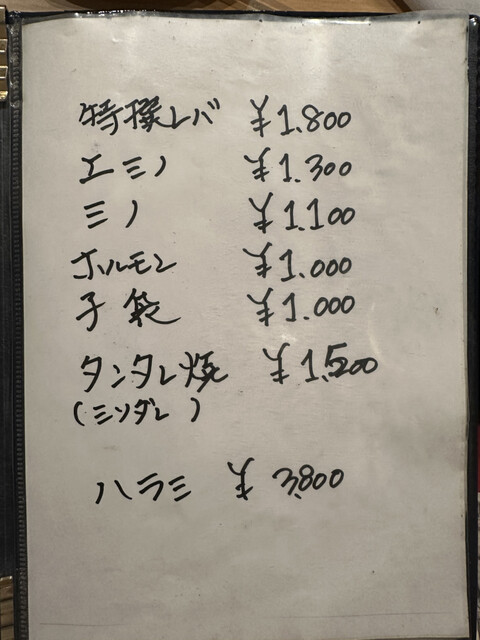 特撰レバ ¥1.800
エミノ ¥1.300
ミノ ¥1.100
ホルモン ¥1.000
子袋 ¥1.000
タンタレ焼 ¥1.500
(ミソダレ)
ハラミ ¥